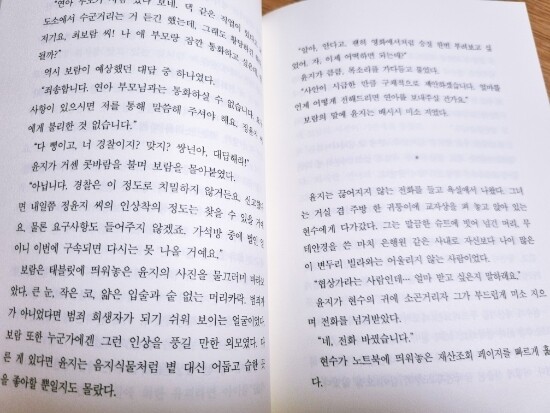 도소에서 수군거리는 거 듣긴 했는데, 그래도 황당하
저기요, 최보람 씨! 나 애 부모랑 잠깐 통화하고 싶은데,
될까?"
역시 보람이 예상했던 대답 중 하나였다.
"죄송합니다. 연아 부모님과는 통화하실 수 없습니다.
사항이 있으시면 저를 통해 말씀해 주셔야 해요. 정윤지
에게 불리한 것 없습니다."
"다 뻥이고, 너 경찰이지? 맞지? 쌍년아, 대답해라!"
윤지가 거센 콧바람을 불며 보람을 몰아붙였다.
"아닙니다. 경찰은 이 정도로 치밀하지 않거든요. 신고했
면 내일쯤 정윤지 씨의 인상착의 정도는 찾을 수 있을
요. 물론 요구사항도 들어주지 않겠죠. 가석방 중에 벌인
아니 이번에 구속되면 다시는 못 나올 거예요."
보람은 태블릿에 띄워놓은 윤지의 사진을 물끄러미 바라보
았다. 큰 눈, 작은 코, 얇은 입술과 숱 없는 머리카락. 범죄
가 아니었다면 범죄 희생자가 되기 쉬워 보이는 얼굴이었다.
보람 또한 누군가에겐 그런 인상을 풍길 만한 외모였다. 다
른 게 있다면 윤지는 음지식물처럼 볕 대신 어둡고 습한
을 좋아할 뿐일지도 몰랐다.
"알아, 안다고. 괜히 영화에서처럼 승질 한번 부려보고 싶
었어. 자, 이제 어떡하면 되는데?"
윤지가 큼큼, 목소리를 가다듬고 물었다.
"사안이 시급한 만큼 구체적으로 제안하겠습니다. 얼마를
언제 어떻게 전해드리면 연아를 보내주실 건가요."
보람의 말에 윤지는 배시시 미소 지었다.
*
윤지는 끊어지지 않는 전화를 들고 욕실에서 나왔다. 그녀
는 거실 겸 주방 한 귀퉁이에 교자상을 펴 놓고 앉아 있는
현수에게 다가갔다. 그는 말끔한 슈트에 벗어 넘긴 머리, 무
테안경을 쓴 마치 은행원 같은 사내로 자신보다 나이 많은
이 변두리 빌라와는 어울리지 않는 사람이었다.
"협상가라는 사람인데⋯ 얼마 받고 싶은지 말하래요."
윤지가 현수의 귀에 소곤거리자 그가 부드럽게 미소 지으
며 전화를 넘겨받았다.
"네, 전화 바꿨습니다."
현수가 노트북에 띄워놓은 재산조회 페이지를 빠르게 훑
다.